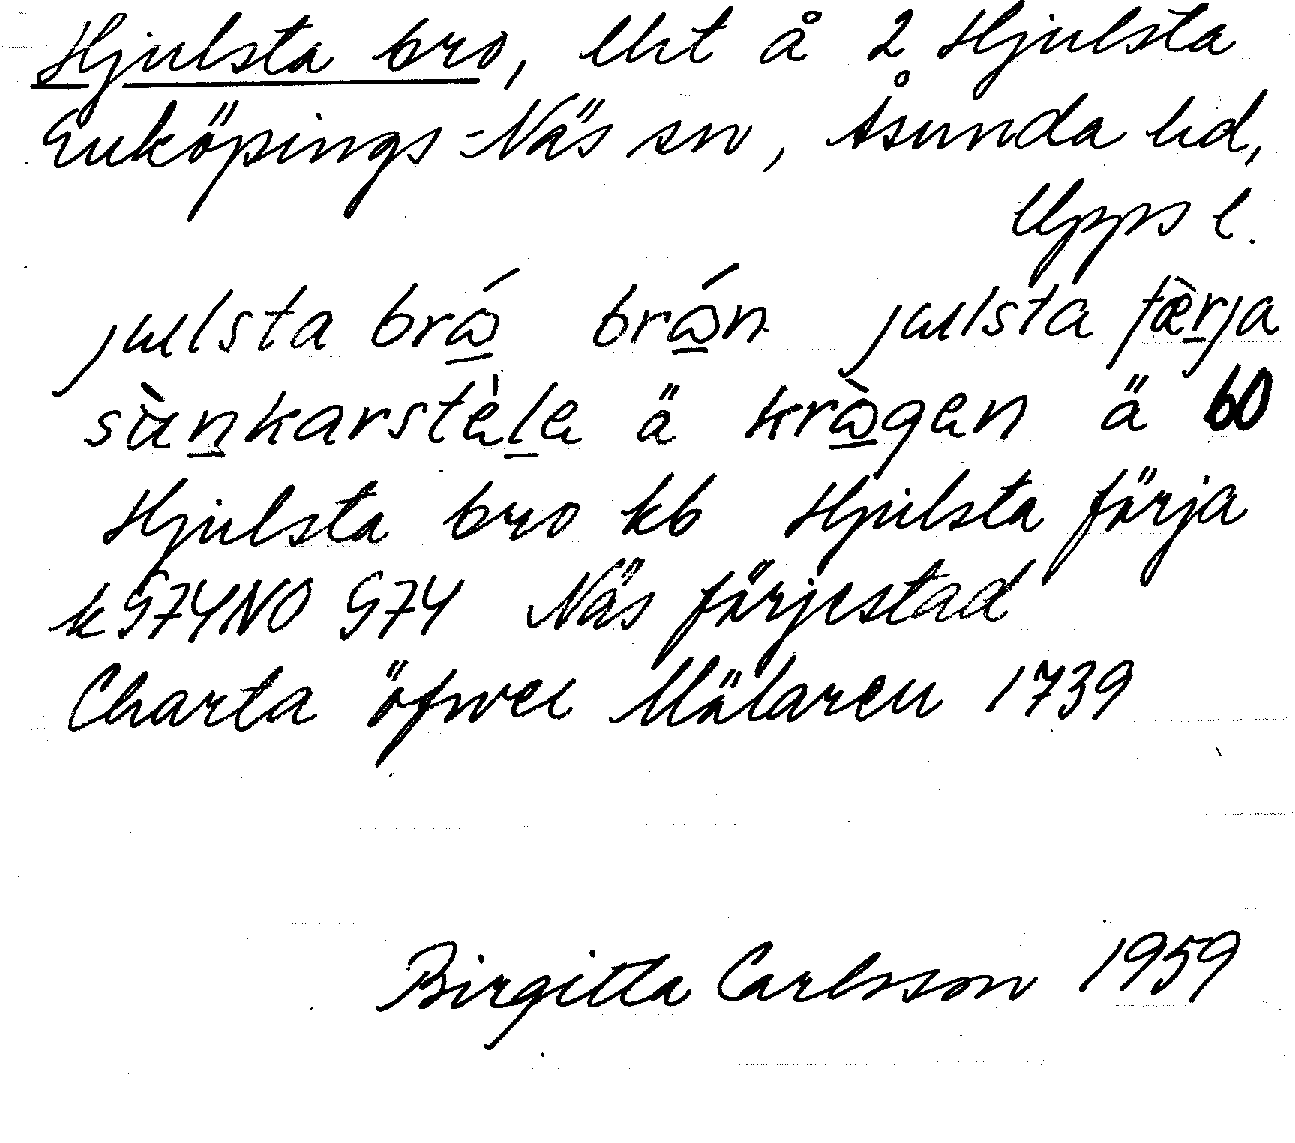 Hjulsta bro, lht å 2 Hjulsta
Enköpings-Näs sn, Åsunda hd,
Upps l.
julsta bró brón julsta fæ̀rja
sànkarstèle ä krògen ä bo
Hjulsta bro kb Hjulsta färja
k G74NO G74 Näs färjestad
Charta öfwer Mälaren 1739
Birgitta Carlsson 1959